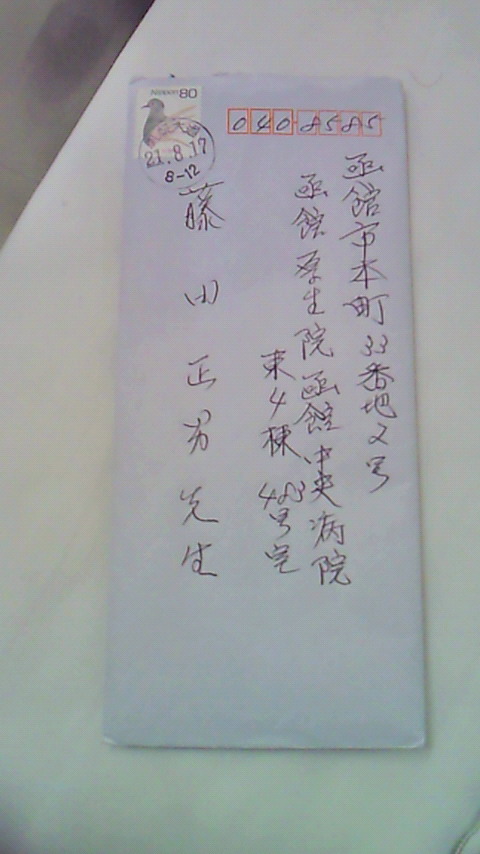 Nippon 80
21.8.17
8-12
040-8585
函館市本町33番地2号
函館厚生院函館中央病院
東4棟 483号室
藤田正男先生